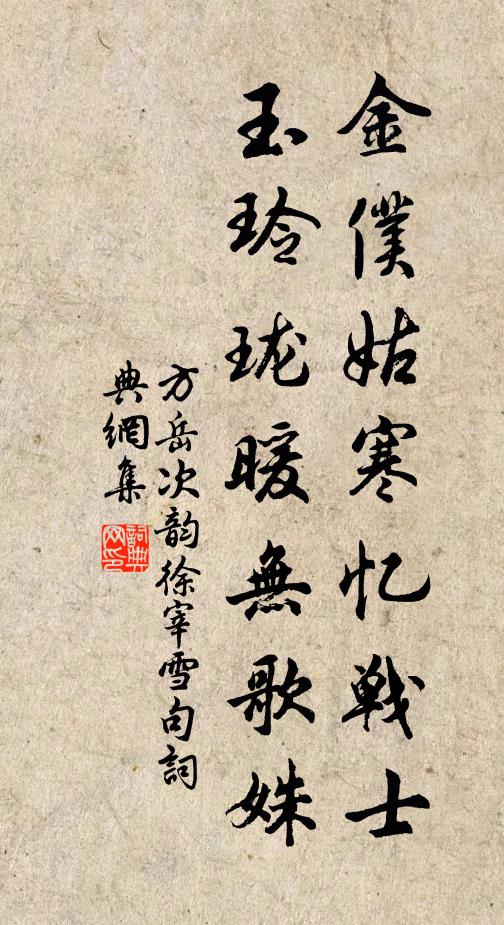 金僕姑寒忆戦士
玉玲珑暖無歌姝
方岳次韵徐宰雪句詞
典網集
詞典网印